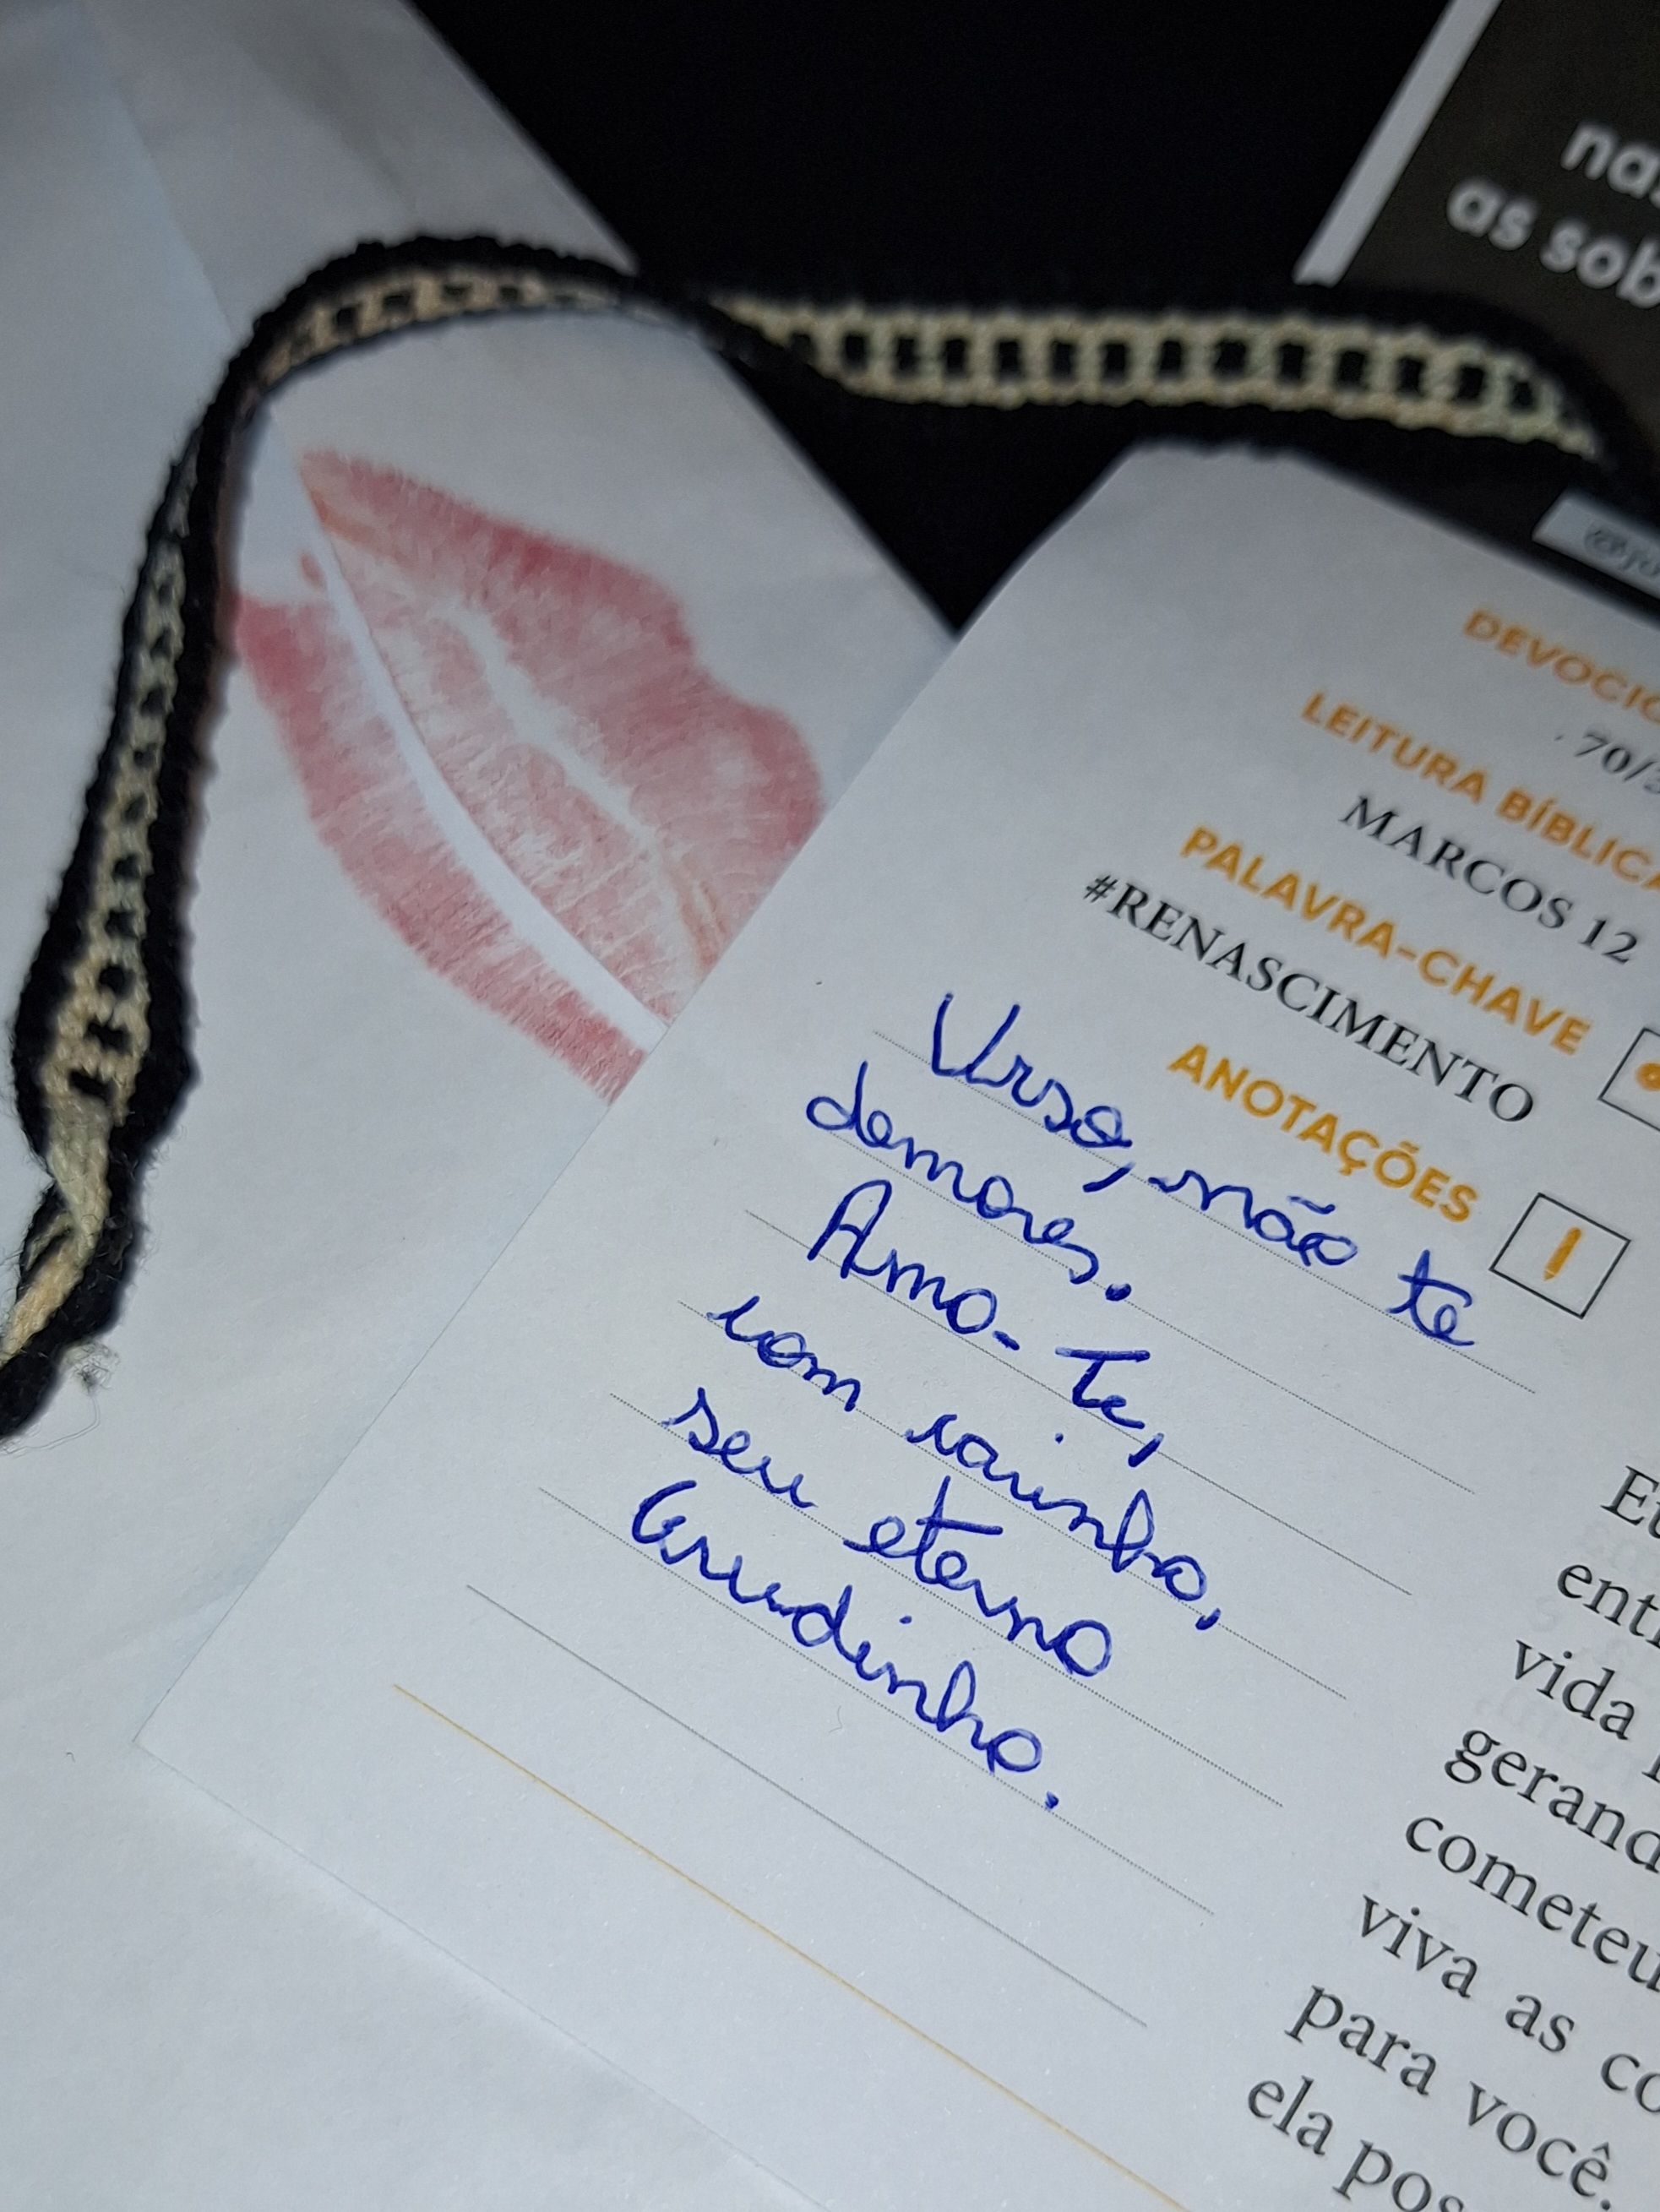 nas
as sob
DEVOCIO
70/3
LEITURA BÍBLICA
MARCOS 12
PALAVRA-CHAVE
#RENASCIMENTO
ANOTAÇÕES
Urso, não te
demores.
Amo-Te,
com carinho,
seu eterno
Grudinho.
Eu
entr
vida
gerand
cometeu
viva as co
para você.
ela pos